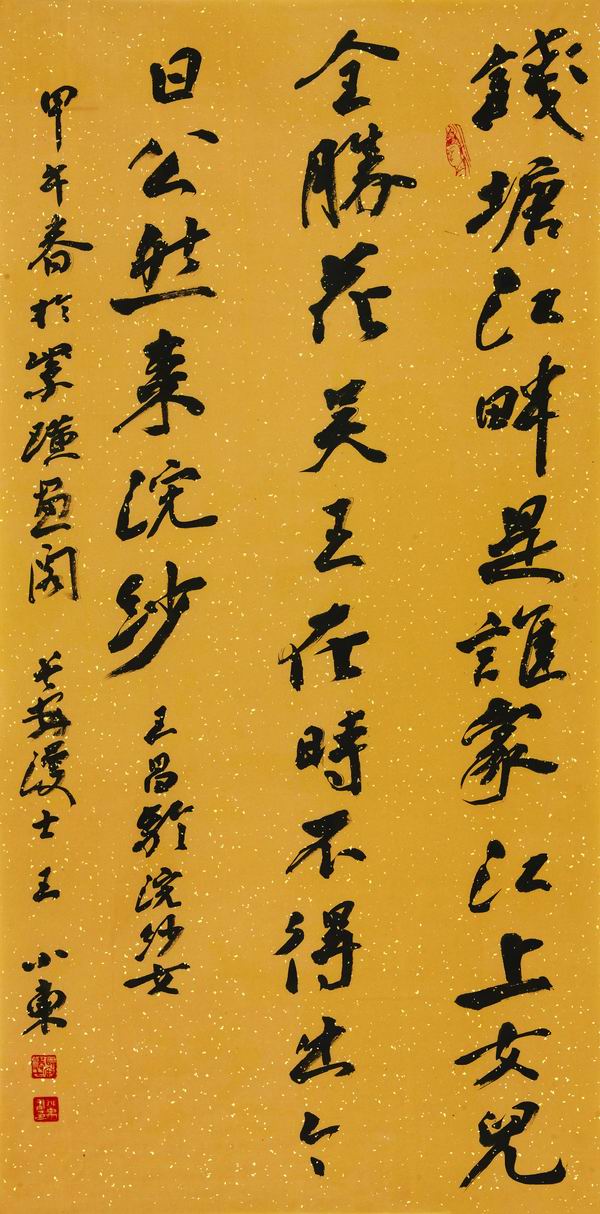 錢塘江畔是誰家江上女兒
全勝花吴王在時不得出今
日公然来浣紗
王昌齡浣紗女
甲午春於紫璜画阁
漫士王小東